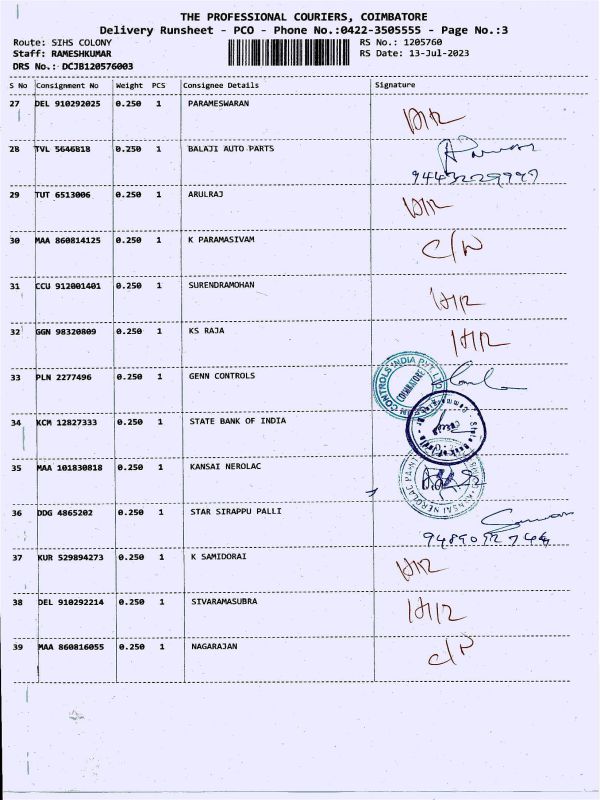 THE PROFESSIONAL COURIERS, COIMBATORE
Delivery Runsheet - PCO - Phone No.:0422-3505555 - Page No.:3
Route: SIHS COLONY RS No.: 1205760
Staff: RAMESHKUMAR RS Date: 13-Jul-2023
DRS No.: DCJB120576003
S No Consignment No Weight PCS Consignee Details Signature
27 DEL 910292025 0.250 1 PARAMESWARAN
28 TVL 5646818 0.250 1 BALAJI AUTO PARTS
29 TUT 6513006 0.250 1 ARULRAJ
30 MAA 860814125 0.250 1 K PARAMASIVAM C/N
31 CCU 912001401 0.250 1 SURENDRAMOHAN
32 GGN 98320809 0.250 1 KS RAJA
33 PLN 2277496 0.250 1 GENN CONTROLS CONTROLS INDIA PVT LTD COIMBATORE
34 KCM 12827333 0.250 1 STATE BANK OF INDIA State Bank of India
35 MAA 101830818 0.250 1 KANSAI NEROLAC KANSAI NEROLAC
36 DDG 4865202 0.250 1 STAR SIRAPPU PALLI
37 KUR 529894273 0.250 1 K SAMIDORAI
38 DEL 910292214 0.250 1 SIVARAMASUBRA
39 MAA 860816055 0.250 1 NAGARAJAN C/N